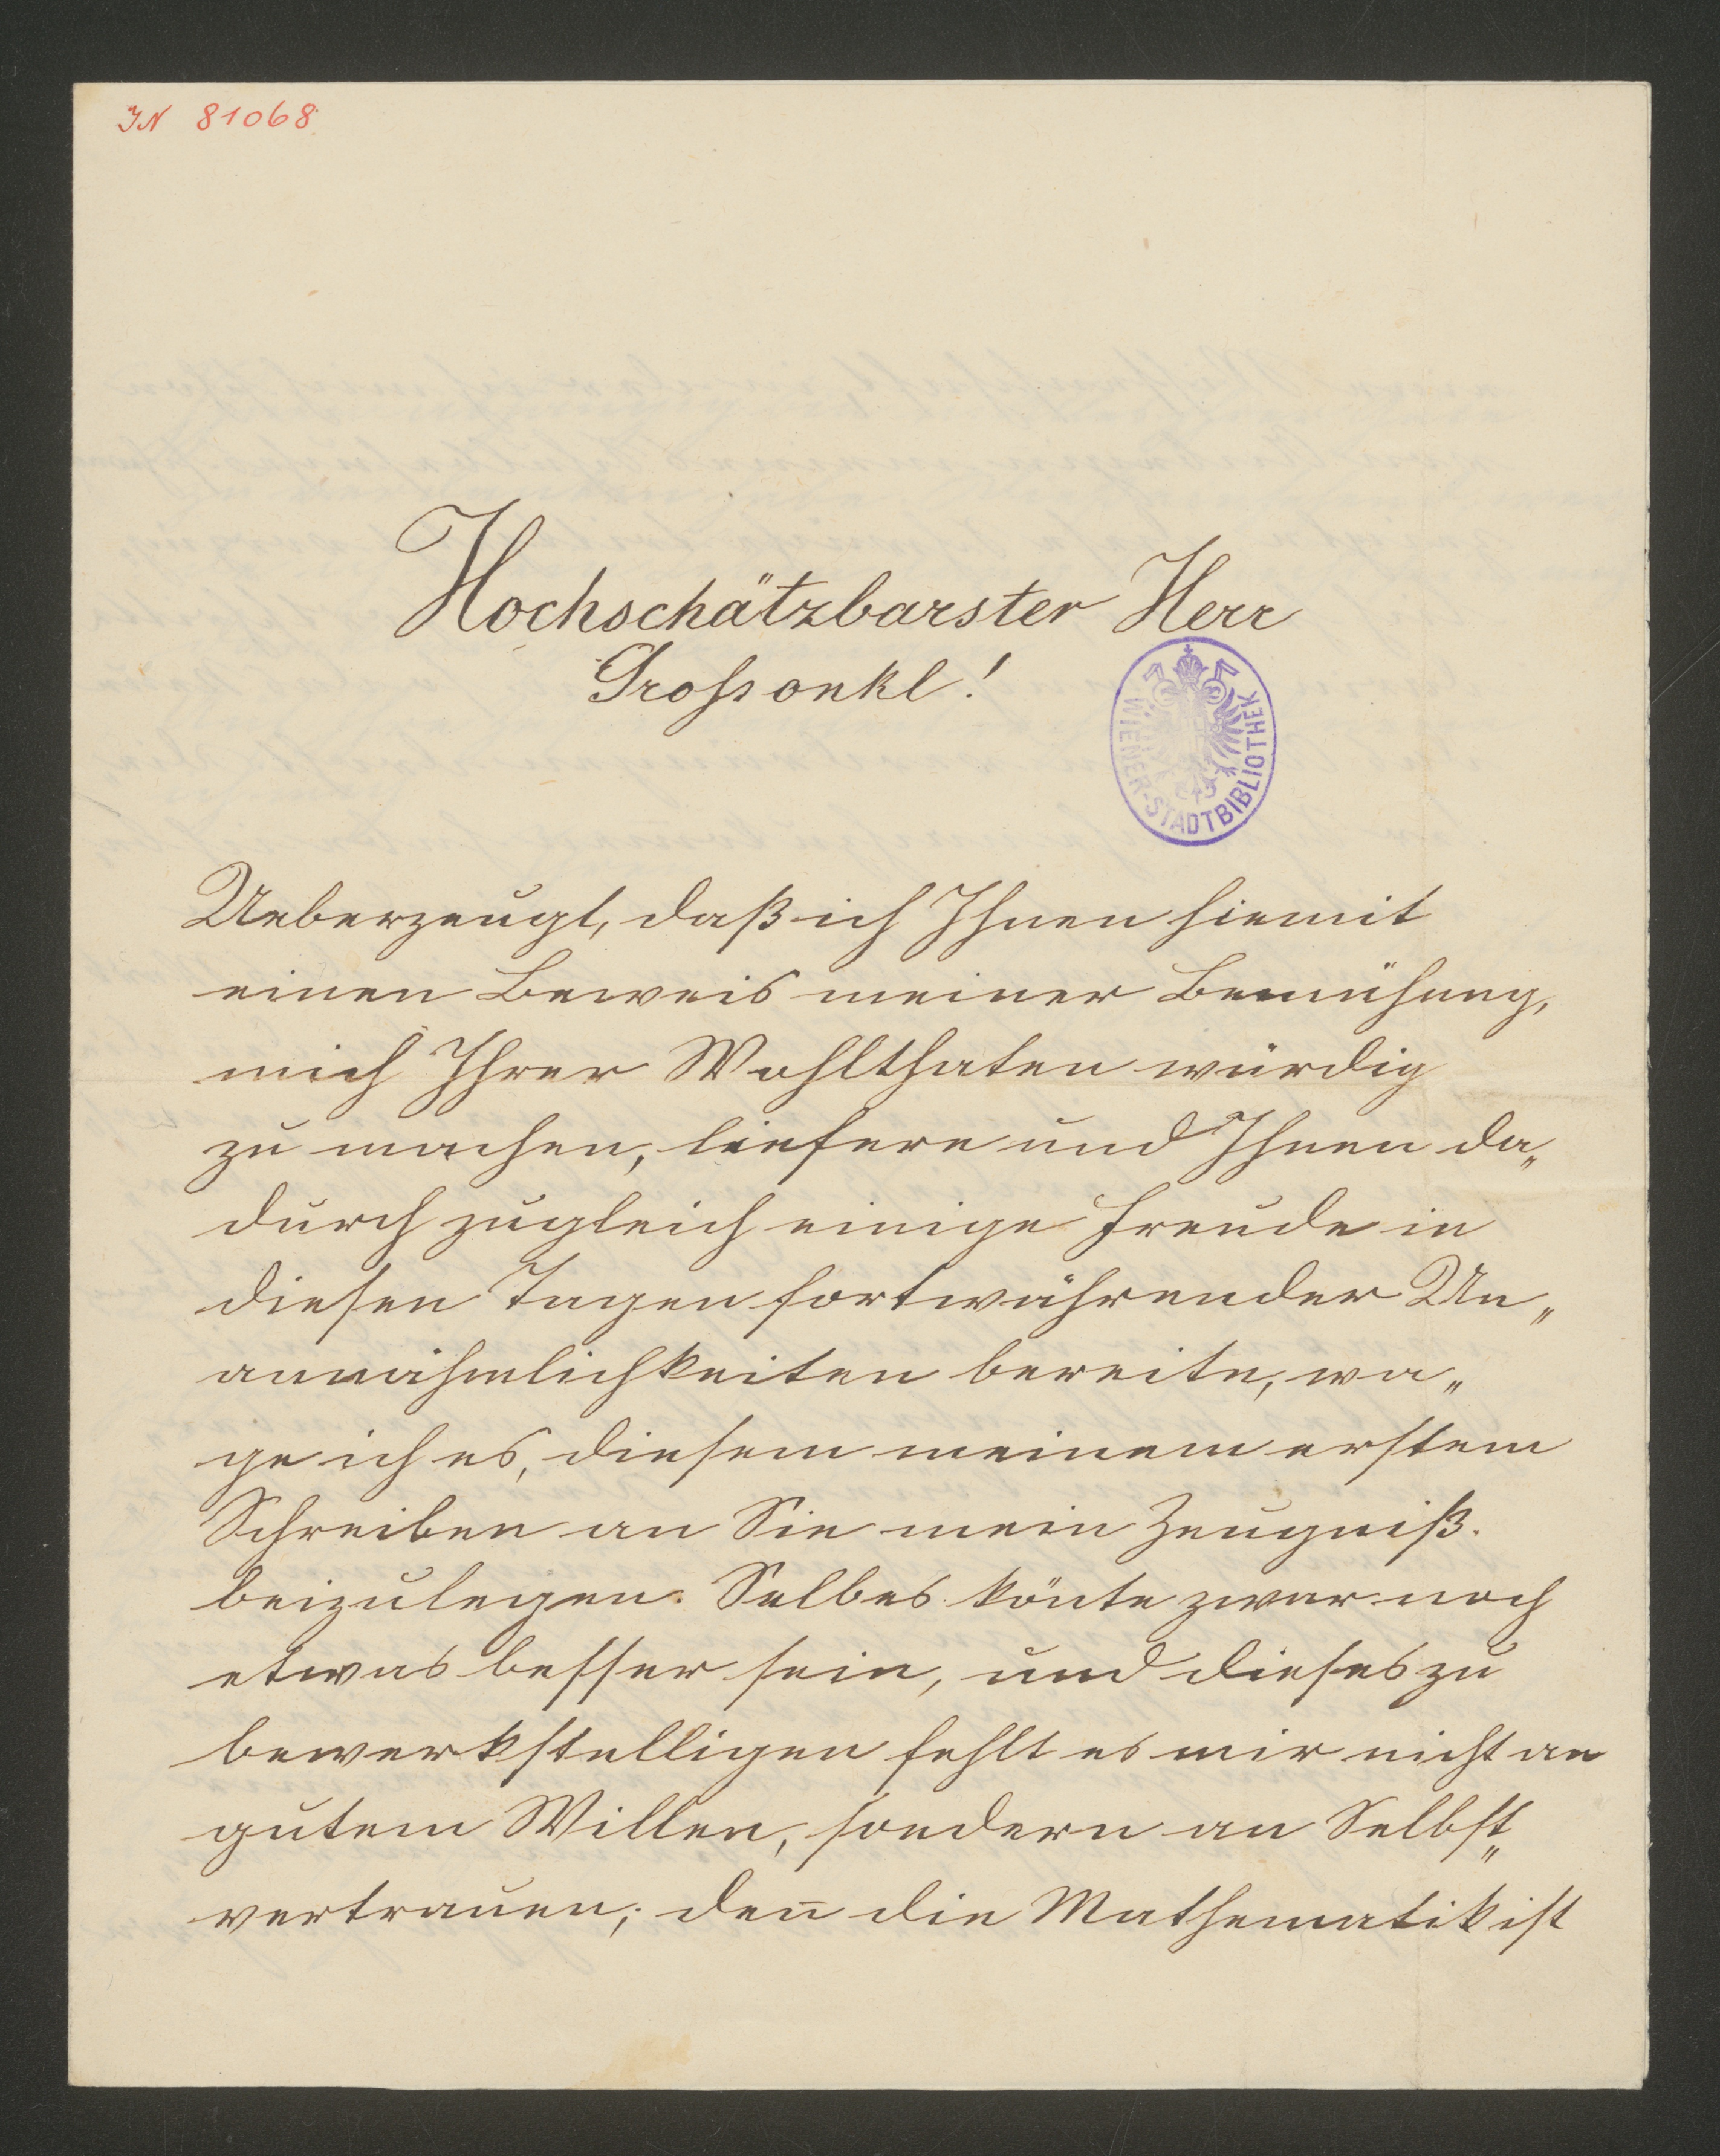 IN 81068
Hochschätzbarster Herr
Grossonkl!
WIENER-STADTBIBLIOTHEK
Ueberzeugt, daß ich Ihnen hiemit
einen Beweis meiner Bemühung,
mich Ihrer Wohlthaten würdig
zu machen, liefere und Ihnen da„
durch zugleich einige Freude in
diesen Tagen fortwährender Un„
annähmlichkeiten bereite, wa„
ge ich es, diesem meinem erstem
Schreiben an Sie mein Zeugniß
beizulegen. Selbes könte zwar noch
etwas besser sein, und dieses zu
bewerkstelligen fehlt es mir nicht an
gutem Willen, sondern an Selbst„
vertrauen; den̅ die Mathematik ist